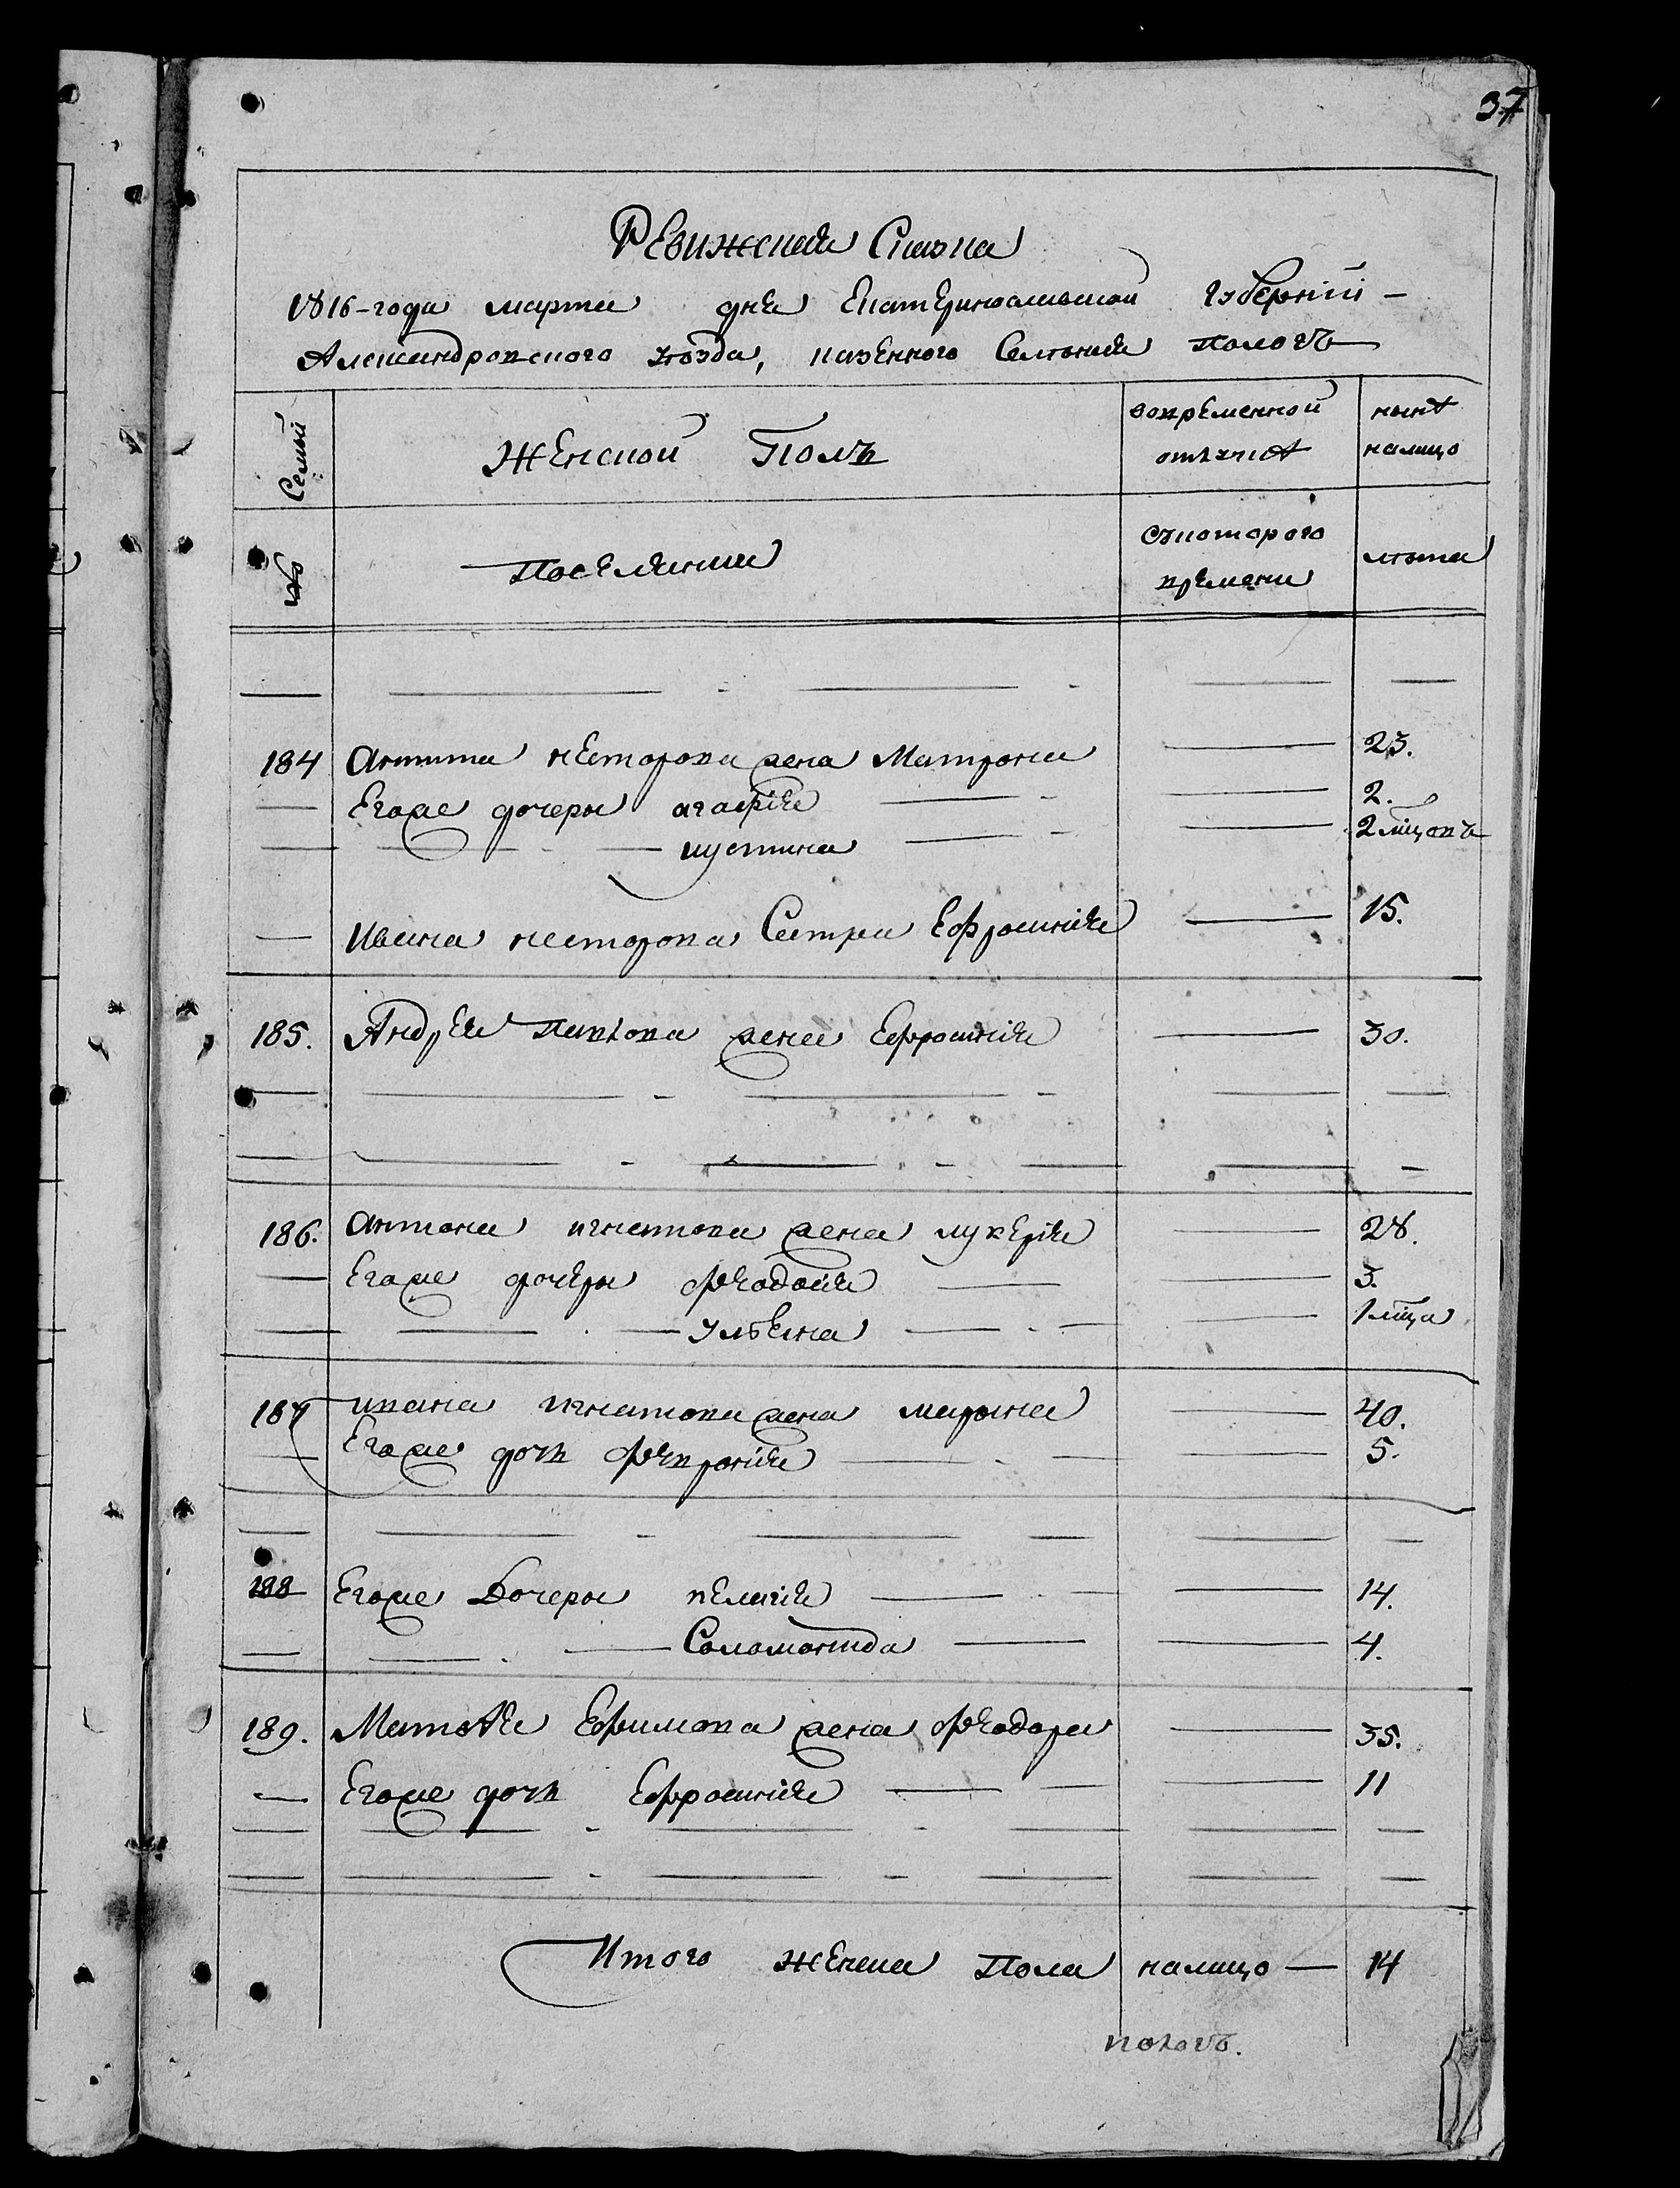 37
Ревижская Сказка
1816-года марта дня Екатеринославской Губерніи -
Александровского уѣзда, казенного Селенія Пологъ
№ Семьи
Женской Полъ
вовременной отлучкѣ
нынѣ налицо
Поселянки
съкоторого времени
лѣта
184 Антипа несторова жена Матрона 23.
Егоже дочеры агафія 2.
иустина 2 мцовъ
Ивана несторова Сестра Ефросинія 15.
185. Андрея Павлова жена Ефросинія 30.
186. Антона игнатова жена лукерія 28.
Егоже дочеры феодосія 3.
Ульяна 1 мца
187 ивана игнатова жена марина 40.
Егоже дочь февронія 5.
188 Егоже Дочеры пелагія 14.
Соломонида 4.
189. Матвѣя Ефимова жена феодора 35.
Егоже дочь Ефросинія 11
Итого женска Пола налицо — 14